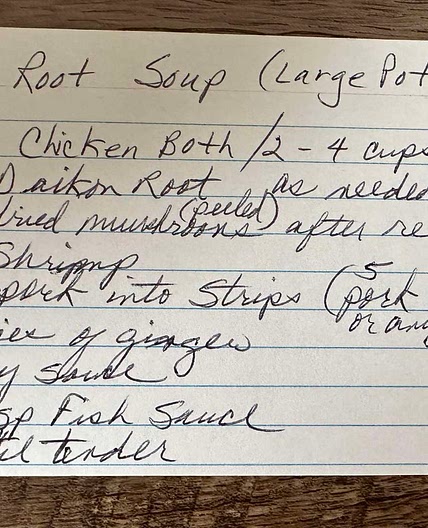 Root Soup (Large Pot
Chicken Both / 2 - 4 cups
Daikon Root as needed
dried mushrooms (peeled) after re
Shrimp
pork into Strips (5 pork
or any
of ginger
y sauce
sp Fish Sauce
til tender